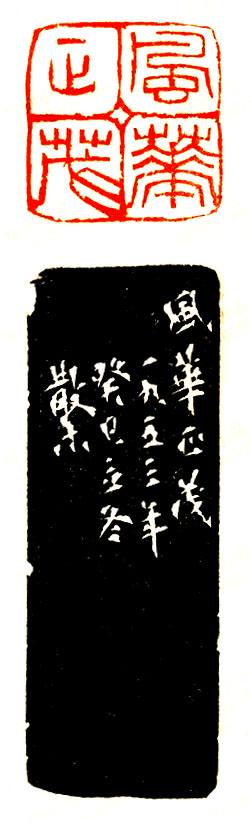 風華
正茂
風華正茂
一九五三年
癸巳立冬
散木